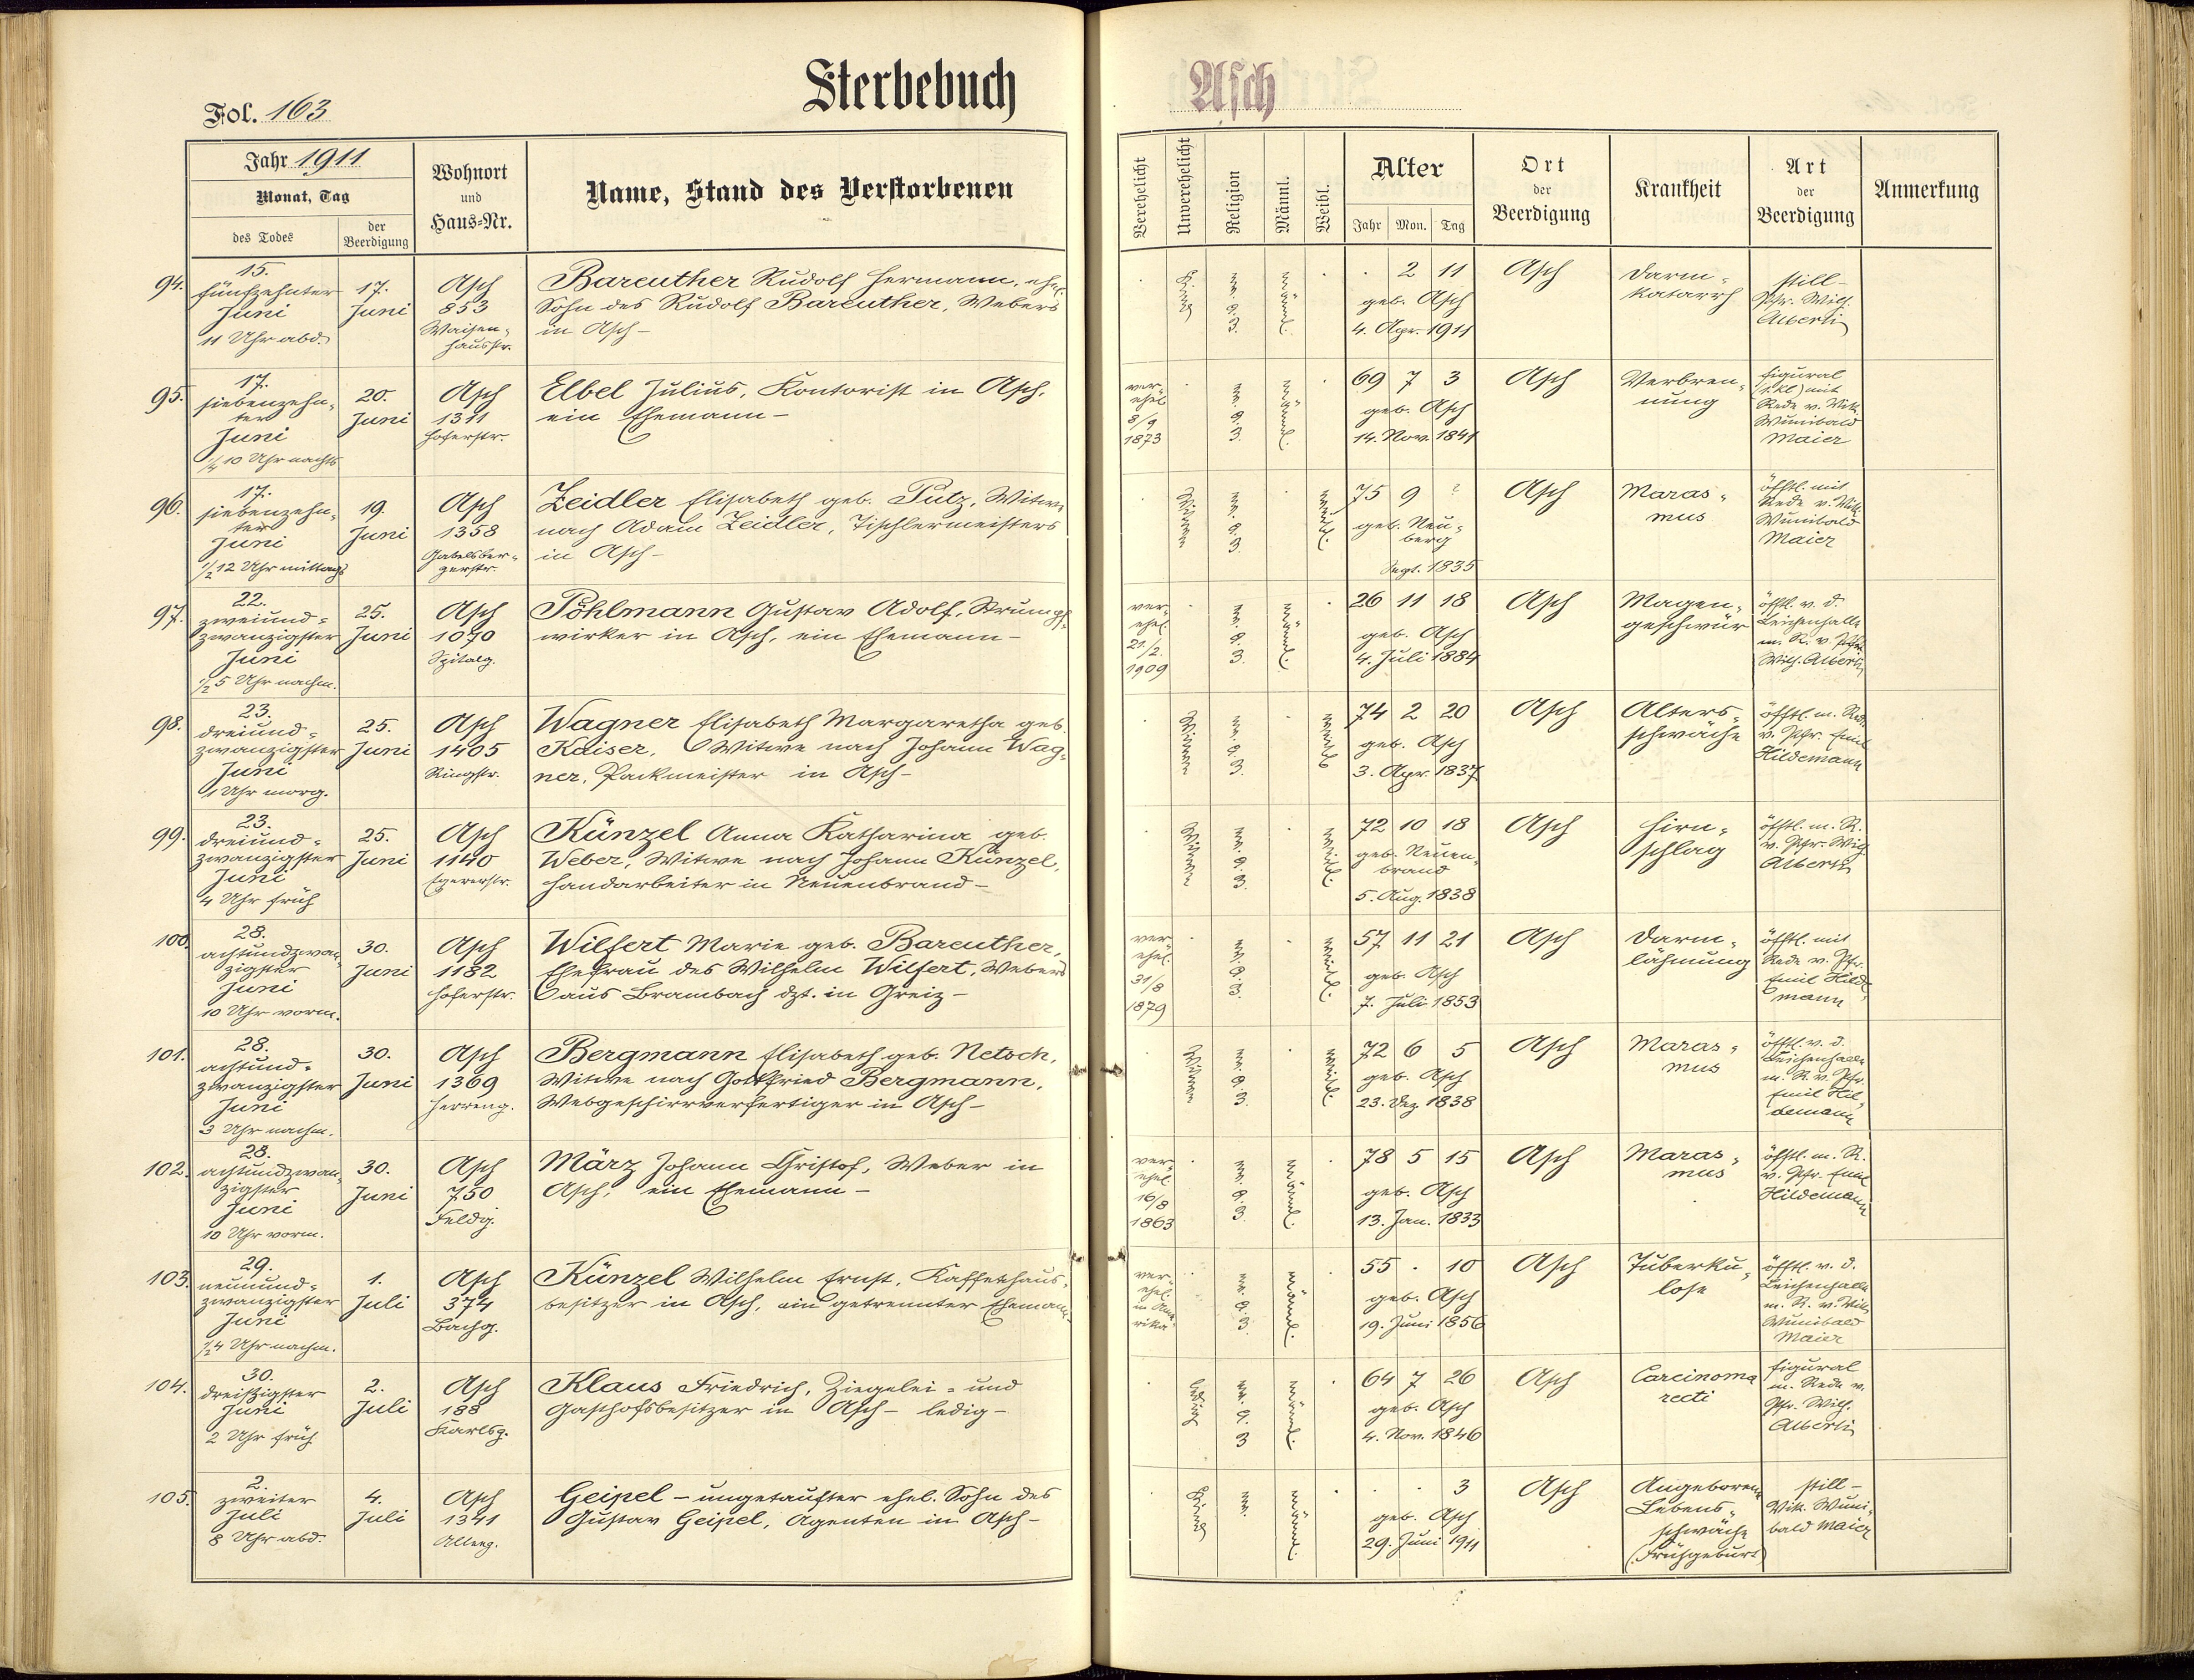 Sterbebuch
Asch
Fol. 163
Jahr 1911
Monat, Tag
des Todes
der Beerdigung
Wohnort
und
Haus=Nr.
Name, Stand des Verstorbenen
Verehelicht
Unverehelicht
Religion
Männl.
Weibl.
Alter
Jahr Mon. Tag
Ort
der
Beerdigung
Krankheit
Art
der
Beerdigung
Anmerkung
94.
15.
fünfzehnter
Juni
11 Uhr abd.
17.
Juni
Asch
853
Waisen=
hausstr.
Bareuther Rudolf Hermann, ehel.
Sohn des Rudolf Bareuther, Webers
in Asch-
Kind
männl.
. 2 11
geb. Asch
4. Apr. 1911
Asch
Darm=
katarrh
still-
Pfr. Wilh.
Alberti
95.
17.
siebenzehn=
ter
Juni
1/4 10 Uhr nachts
20.
Juni
Asch
1311
Hoferstr.
Elbel Julius, Kontorist in Asch,
ein Ehemann-
ver=
ehel.
8/9
1873
männl.
69 7 3
geb. Asch
14. Nov. 1841
Asch
Verbren=
nung
figural
(1. Kl) mit
Rede v. Vik.
Wunibald
Maier
96.
17.
siebenzehn=
ter
Juni
1/2 12 Uhr mittags
19.
Juni
Asch
1358
Gabelsber=
gerstr.
Zeidler Elisabeth geb. Putz, Witwe
nach Adam Zeidler, Tischlermeisters
in Asch-
Witwe
weibl.
75 9 ?
geb. Neu=
berg
Sept. 1835
Asch
Maras=
mus
öfftl. mit
Rede v. Vik.
Wunibald
Maier
97.
22.
zweiund=
zwanzigster
Juni
1/2 5 Uhr nachm.
25.
Juni
Asch
1070
Spitalg.
Pöhlmann Gustav Adolf, Strumpf=
wirker in Asch, ein Ehemann-
ver=
ehel.
21/2.
1909
männl.
26 11 18
geb. Asch
4. Juli 1884
Asch
Magen=
geschwür
öfftl. v. d.
Leichenhalle
m. R. v. Pfr.
Wilh. Alberti
98.
23.
dreiund=
zwanzigster
Juni
1 Uhr morg.
25.
Juni
Asch
1405
Ringstr.
Wagner Elisabeth Margaretha geb.
Kaiser, Witwe nach Johann Wag=
ner, Packmeister in Asch-
Witwe
weibl.
74 2 20
geb. Asch
3. Apr. 1837
Asch
Alters=
schwäche
öfftl. m. Rede
v. Pfr. Emil
Hildemann
99.
23.
dreiund=
zwanzigster
Juni
4 Uhr früh
25.
Juni
Asch
1140
Egererstr.
Künzel Anna Katharina geb.
Weber, Witwe nach Johann Künzel,
Handarbeiter in Neuenbrand-
Witwe
weibl.
72 10 18
geb. Neuen=
brand
5. Aug. 1838
Asch
Hirn=
schlag
öfftl. m. R.
v. Pfr. Wilh.
Alberti
100.
28.
achtundzwan=
zigster
Juni
10 Uhr vorm.
30.
Juni
Asch
1182
Hoferstr.
Wilfert Marie geb. Bareuther,
Ehefrau des Wilhelm Wilfert, Webers
aus Brambach dzt. in Greiz-
ver=
ehel.
31/8
1879
weibl.
57 11 21
geb. Asch
7. Juli 1853
Asch
Darm=
lähmung
öfftl. mit
Rede v. Pfr.
Emil Hilde=
mann
101.
28.
achtund=
zwanzigster
Juni
3 Uhr nachm.
30.
Juni
Asch
1369
Herreng.
Bergmann Elisabeth geb. Netsch,
Witwe nach Gottfried Bergmann,
Webgeschirrverfertiger in Asch-
Witwe
weibl.
72 6 5
geb. Asch
23. Dez. 1838
Asch
Maras=
mus
öfftl. v. d.
Leichenhalle
m. R. v. Pfr.
Emil Hil=
demann
102.
28.
achtundzwan=
zigster
Juni
10 Uhr vorm.
30.
Juni
Asch
750
Feldg.
März Johann Christof, Weber in
Asch, ein Ehemann-
ver=
ehel.
16/8
1863
männl.
78 5 15
geb. Asch
13. Jan. 1833
Asch
Maras=
mus
öfftl. m. R.
v. Pfr. Emil
Hildemann
103.
29.
neunund=
zwanzigster
Juni
1/2 4 Uhr nachm.
1.
Juli
Asch
374
Bachg.
Künzel Wilhelm Ernst, Kaffeehaus=
besitzer in Asch, ein getrennter Ehemann-
ver=
ehel.
in Ame=
rika
männl.
55 . 10
geb. Asch
19. Juni 1856
Asch
Tuberku=
lose
öfftl. v. d.
Leichenhalle
m. R. v. Vik.
Wunibald
Maier
104.
30.
dreißigster
Juni
2 Uhr früh
2.
Juli
Asch
188
Karlsg.
Klaus Friedrich, Ziegelei= und
Gasthofsbesitzer in Asch- ledig-
ledig
männl.
64 7 26
geb. Asch
4. Nov. 1846
Asch
Carcinoma
recti
figural
m. Rede v.
Pfr. Wilh.
Alberti
105.
2.
zweiter
Juli
8 Uhr abd.
4.
Juli
Asch
1341
Alleeg.
Geipel - ungetaufter ehel. Sohn des
Gustav Geipel, Agenten in Asch-
Kind
männl.
. . 3
geb. Asch
29. Juni 1911
Asch
Angeborene
Lebens=
schwäche
(Frühgeburt)
still-
Vik. Wuni=
bald Maier